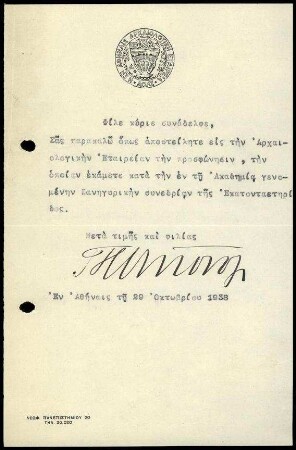 Φίλε κύριε συνάδελφε,
Σᾶς παρακαλῶ ὅπως ἀποστείλητε εἰς τὴν Ἀρχαι-
ολογικὴν Ἑταιρείαν τὴν προσφώνησιν , τὴν
ὁποίαν ἐκάματε κατὰ τὴν ἐν τῇ Ἀκαδημίᾳ γενο-
μένην πανηγυρικὴν συνεδρίαν τῆς Ἑκατονταετηρί
δος.
Μετὰ τιμῆς καὶ φιλίας
Ἐν Ἀθήναις τῇ 29 Ὀκτωβρίου 1938
ΛΕΩΦ. ΠΑΝΕΠΙΣΤΗΜΙΟΥ 20